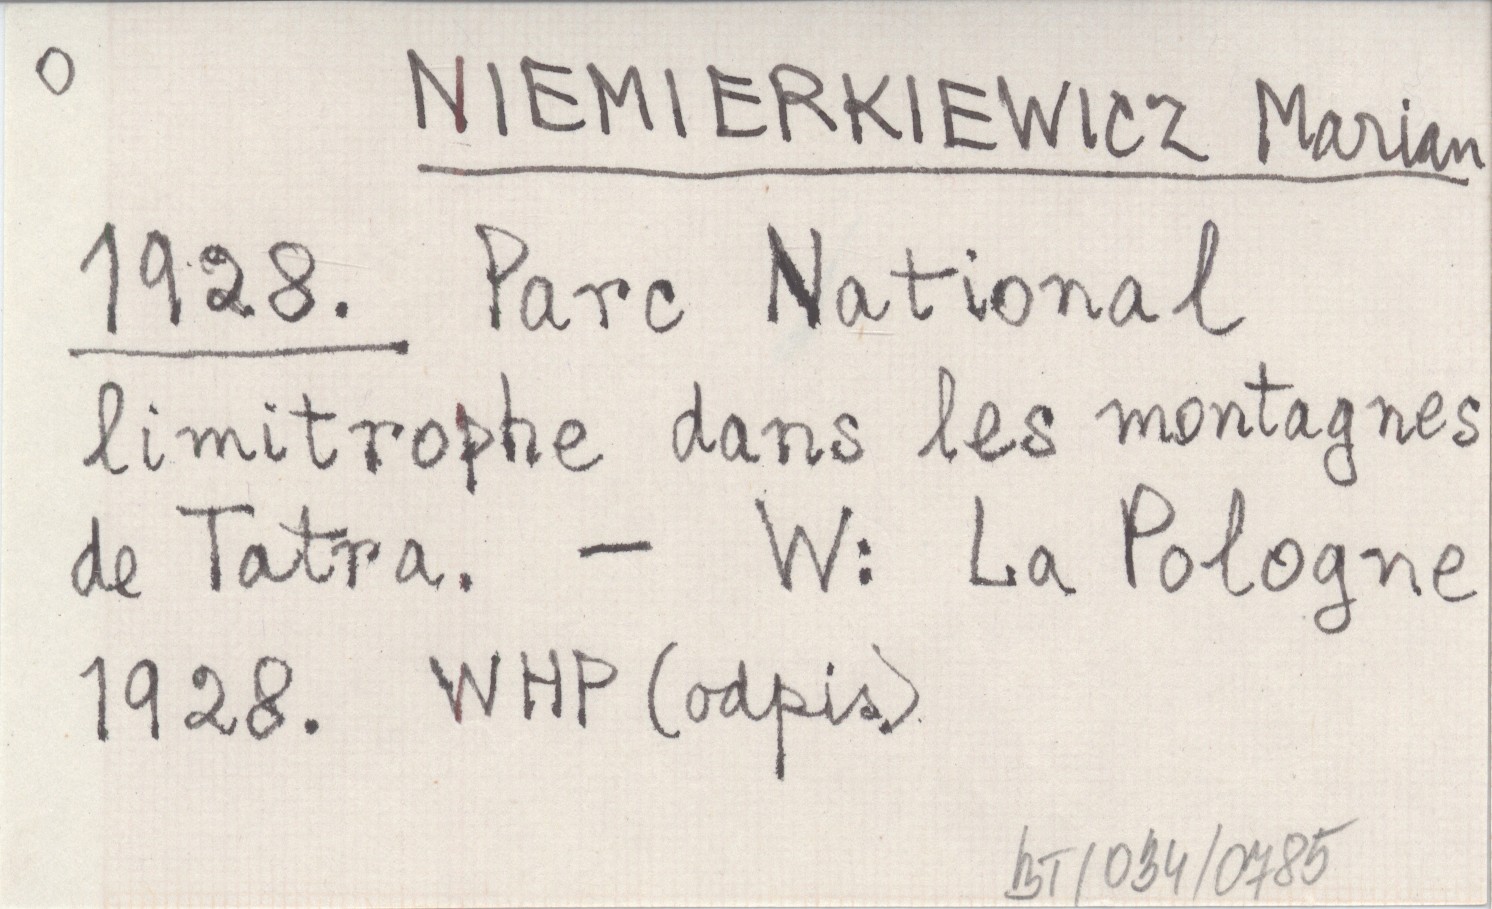 O
NIEMIERKIEWICZ Marian
1928. Parc National
limitrophe dans les montagnes
de Tatra. — W: La Pologne
1928. WHP (odpis)
BT/034/0785